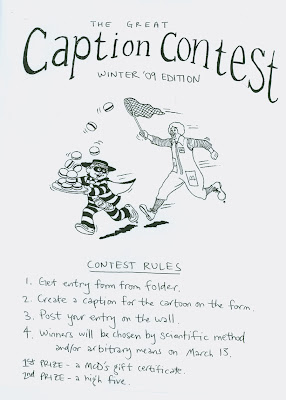 THE GREAT
Caption Contest
WINTER '09 EDITION
CONTEST RULES
1. Get entry form from folder.
2. Create a caption for the cartoon on the form.
3. Post your entry on the wall.
4. Winners will be chosen by scientific method
and/or arbitrary means on March 13.
1ST PRIZE - a McD's gift certificate.
2nd PRIZE - a high five.